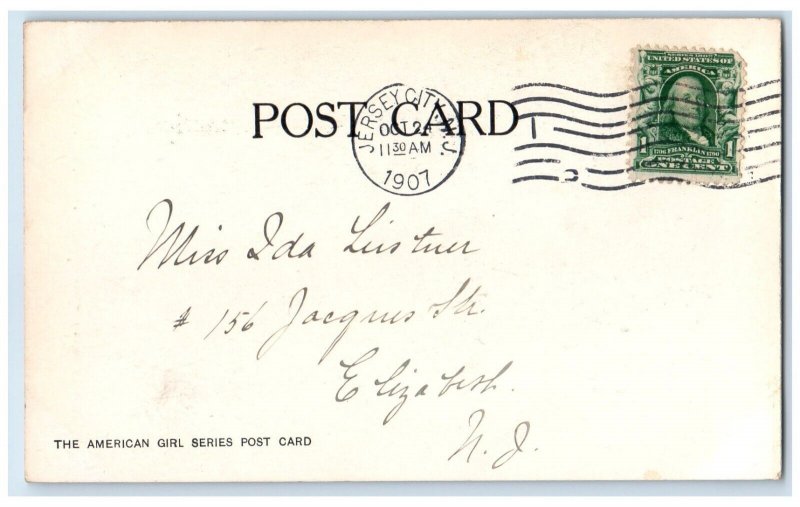 SERIES 1902
UNITED STATES OF
AMERICA
1706 FRANKLIN 1790
1 POSTAGE 1
ONE CENT
POST CARD
JERSEY CITY, N.J.
OCT 24
11 30 AM
1907
1
Miss Ida Leistner
# 156 Jacques Str.
Elizabeth.
N. J.
THE AMERICAN GIRL SERIES POST CARD